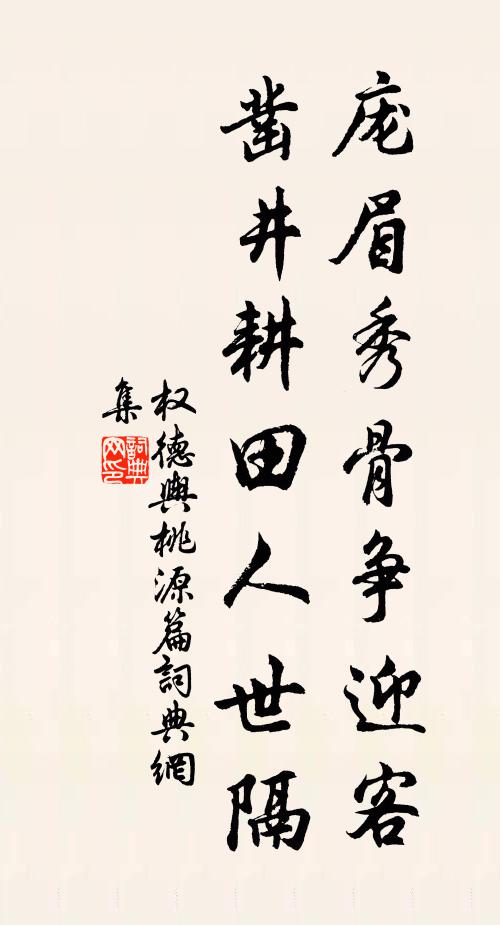 庞眉秀骨争迎客
凿井耕田人世隔
权德舆桃源篇詞典網
集
詞典網印